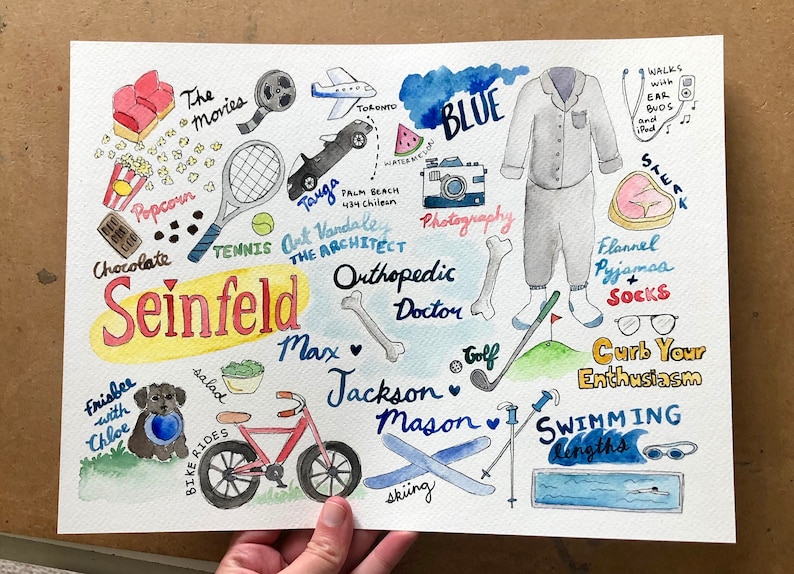 The
Movies
TORONTO
BLUE
WALKS
with
EAR
BUDS
and
iPod
WATERMELON
Popcorn
Targa
PALM BEACH
434 Chilean
STEAK
Photography
Chocolate
TENNIS
Art Vandalay
THE ARCHITECT
Flannel
Pyjamas
+
SOCKS
Seinfeld
Orthopedic
Doctor
Max
Golf
Curb Your
Enthusiasm
Frisbee
with
Chloe
salad
Jackson
Mason
BIKE RIDES
skiing
SWIMMING
lengths